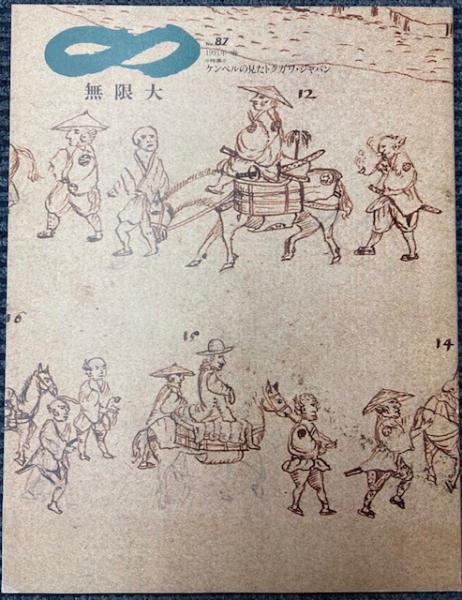 No.87
1991年
ケンペルの見たトクガワ・ジャパン
無限大
12
16
15
14